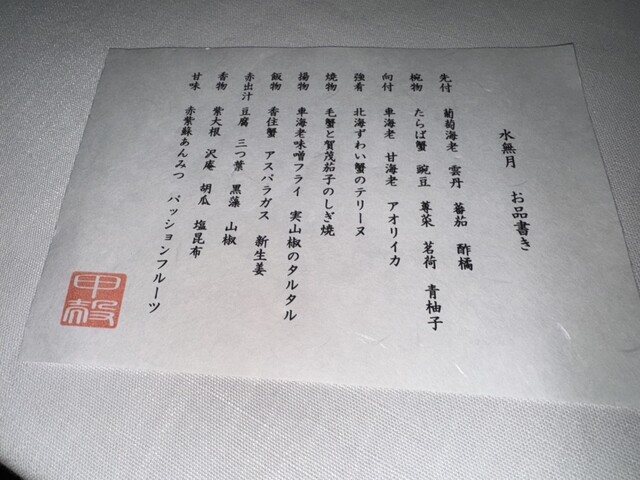 水無月　お品書き
先付　葡萄海老　雲丹　蕃茄　酢橘
椀物　たらば蟹　豌豆　蓴菜　茗荷　青柚子
向付　車海老　甘海老　アオリイカ
強肴　北海ずわい蟹のテリーヌ
焼物　毛蟹と賀茂茄子のしぎ焼
揚物　車海老味噌フライ　実山椒のタルタル
飯物　香住蟹　アスパラガス　新生姜
赤出汁　豆腐　三つ葉　黒藻　山椒
香物　紫大根　沢庵　胡瓜　塩昆布
甘味　赤紫蘇あんみつ　パッションフルーツ
甲殻